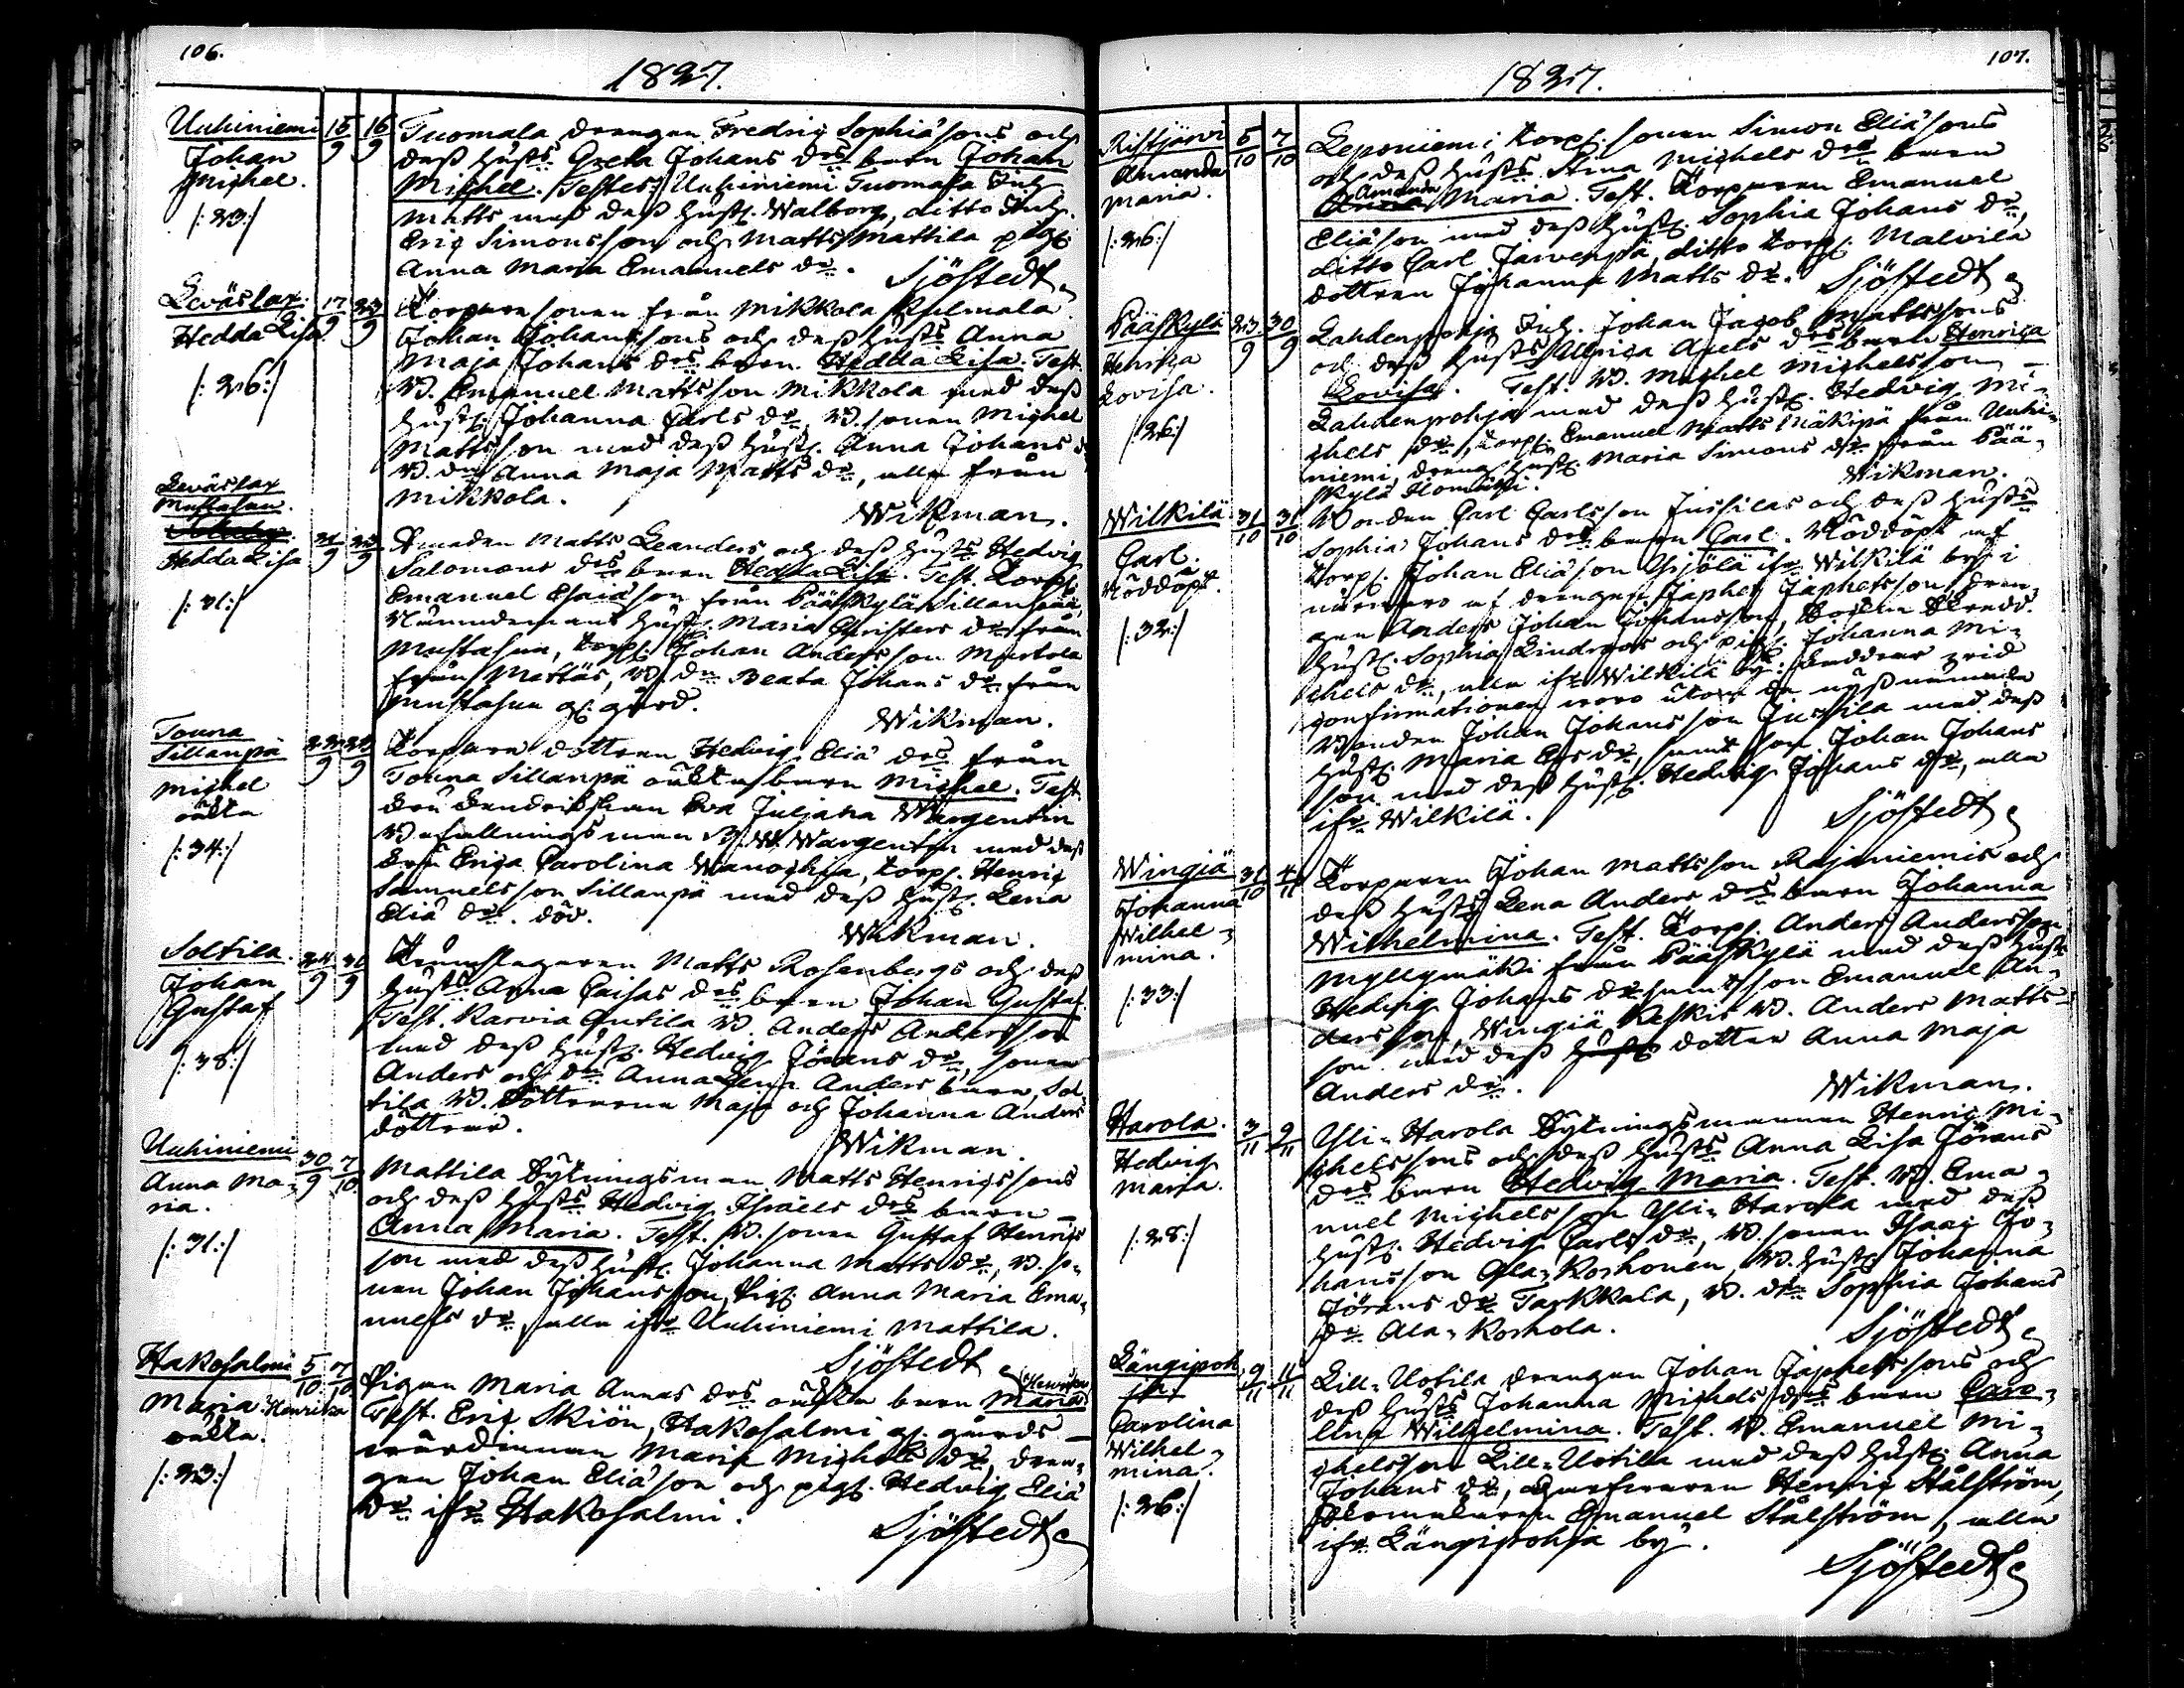 106.
1827.
Uuhiniemi 15/9 16/9
Johan
Michel.
/: 23:/
Tuomala drengen Fredric Sophiæsons och
dess hust:s Greta Johans dr:s barn Johan
Michel. Testes: Uuhiniemi Tuomala Inh.
Matts med dess hust. Walborg, ditto Inh.
Eric Simonsson och Matts Mattila pig.
Anna Maria Emanuels dr. Sjöstedt
Leväslax 17/9 23/9
Hedda Lisa
/: 26:/
Torpare sonen från Mikkola Kulmala
Johan Johanssons och dess hust:s Anna
Maja Johans dr:s barn Hedda Lisa. Test.
B. Emanuel Mattsson Mikkola med dess
hust. Johanna Carls dr, B. sonen Michel
Mattsson med dess hust. Anna Johans dr
B. dr Anna Maja Matts dr, alla från
Mikkola.
Wikman.
Leväslax
Mustasuu.
Hedda Lisa 21/9 23/9
/: 31:/
Smeden Matts Leanders och dess hust:s Hedvig
Salomons dr:s barn Hedda Lisa. Test. Torp.
Emanuel Esaiæson från Pääskylä Sillanpää,
Nämndemans hust. Maria Christers dr från
Mustasuu, torp. Johan Andersson Martola
från Mattäs, B. dr Beata Johans dr från
Mustasuu gård.
Wikman.
Touna
Sillanpä 22/9 23/9
Michel
oäkta
/: 34:/
Torpare dottren Hedvig Eliæ dr:s från
Touna Sillanpä oäkta barn Michel. Test.
Eva Juliana Wargentin
Befallningsman B. W. Wargentin med dess
Fru Erica Carolina, torp. Henric
Samuelsson Sillanpä med dess hust. Lena
Eliæ dr. död.
Wikman.
Soltila. 24/9 30/9
Johan
Gustaf
/: 38:/
Trumslagaren Matts Rosenbergs och dess
hust:s Anna Caisas dr:s barn Johan Gustaf.
Test. Karvia Antila B. Anders Andersson
med dess hust. Hedvig Jörans dr, sonen
Anders och dr Anna Lena Anders barn, Sol
tila B. döttrarne Maja och Johanna Anders
döttrar.
Wikman.
Uuhiniemi 30/9 7/10
Anna Ma-
ria.
/: 31:/
Mattila Bytningsman Matts Henricssons
och dess hust:s Hedvig Israels dr:s barn
Anna Maria. Test. B. sonen Gustaf Henrics
son med dess hust. Johanna Matts dr, B. so-
nen Johan Johansson, pig. Anna Maria Ema-
nuels dr, alla ifr. Uuhiniemi Mattila.
Sjöstedt
Hakosalmi 5/10 7/10
Maria Henrika
oäkta.
/: 23:/
Pigan Maria Annas dr:s oäkta barn Maria Henrica
Test. Eric Skiön, Hakosalmi gårds
wärdinnan Maria Michels dr, dren-
gen Johan Eliæson och pig. Hedvig Eliæ
dr ifr. Hakosalmi.
Sjöstedt
107.
1827.
Ristjärvi 5/10 7/10
Amanda
Maria.
/: 26:/
Leponiemi torp. sonen Simon Eliæsons
och dess hust:s Stina Michels dr:s barn
Amanda Maria. Test. Torparen Emanuel
Eliæson med dess hust. Sophia Johans dr,
ditto Carl Järvenpä, ditto torp. Malvila
dottren Johanna Matts dr. Sjöstedt
Pääskylä 23/9 30/9
Henrica
Lovisa.
/: 26:/
Lahdenpohja Inh. Johan Jacob Mattssons
och dess hust:s Ulrica Axels dr:s barn Henrica
Lovisa. Test. B. Michel Michelsson
Lahdenpohja med dess hust. Hedvig Mi-
chels dr, torp. Emanuel Matts Mäkipä från Uuhi-
niemi, dreng hust. Maria Simons dr från Pää-
skylä.
Wikman.
Wilkilä 31/10 31/10
Carl.
Nöddöpt.
/: 32:/
Bonden Carl Carlsson Jussilas och dess hust:s
Sophia Johans dr:s barn Carl. Nöddöpt af
torp. Johan Eliæson Yrjölä ifr. Wilkilä by i
närvaro af drengen Japhet Japhetsson, dren-
gen Anders Johan Johansson,
hust. Sophia Lindroos och pig. Johanna Mi-
chels dr, alla ifr. Wilkilä by. Faddrar vid
confirmationen woro utom de nyssnämnda
Bonden Johan Johansson Jussila med dess
hust. Maria Ers dr, samt son Johan Johans
son med dess hust. Hedvig Johans dr, alla
ifr. Wilkilä.
Sjöstedt
Wingiä 31/10 4/11
Johanna
Wilhel-
mina.
/: 33:/
Torparen Johan Mattsson Rajaniemis och
dess hust:s Lena Anders dr:s barn Johanna
Wilhelmina. Test. Torp. Anders Andersson
Myllymäki från Pääskylä med dess hust.
Hedvig Johans dr samt son Emanuel An-
dersson, Wingiä Keskis B. Anders Matts-
son med dess dotter Anna Maja
Anders dr.
Wikman.
Harola. 3/11 9/11
Hedvig
Maria.
/: 28:/
Yli-Harola Bytningsmannen Henric Mi-
chelssons och dess hust:s Anna Lisa Jörans
dr:s barn Hedvig Maria. Test. B. Ema-
nuel Michelsson Yli-Harola med dess
hust. Hedvig Carls dr, B. sonen Isaac Jo-
hansson Ala-Koskonen, B. hust. Johanna
Jörans dr Tarkkala, B. dr Sophia Johans
dr Ala-Koskola.
Sjöstedt
Längipoh
ja 9/11 11/11
Carolina
Wilhel-
mina.
/: 26:/
Lill-Uotila drengen Johan Japhetssons och
dess hust:s Johanna Michels dr:s barn Caro-
lina Wilhelmina. Test. B. Emanuel Mi-
chelsson Lill-Uotila med dess hust. Anna
Johans dr, Garfvaren Henric Stålström,
Skomakaren Emanuel Stålström, alla
ifr. Längipohja by.
Sjöstedt